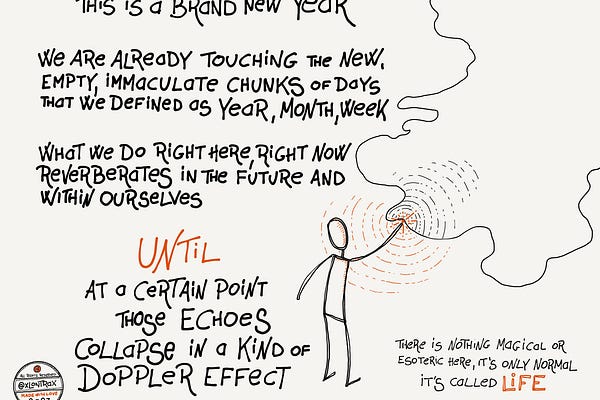 THIS IS A BRAND NEW YEAR
WE ARE ALREADY TOUCHING THE NEW,
EMPTY, IMMACULATE CHUNKS OF DAYS
THAT WE DEFINED AS YEAR, MONTH, WEEK
WHAT WE DO RIGHT HERE, RIGHT NOW
REVERBERATES IN THE FUTURE AND
WITHIN OURSELVES
UNTIL
AT A CERTAIN POINT
THOSE ECHOES
COLLAPSE IN A KIND OF
DOPPLER EFFECT
THERE IS NOTHING MAGICAL OR
ESOTERIC HERE, IT'S ONLY NORMAL
IT'S CALLED LIFE
ALL RIGHTS RESERVED
@XLONTRAX
MADE WITH LOVE